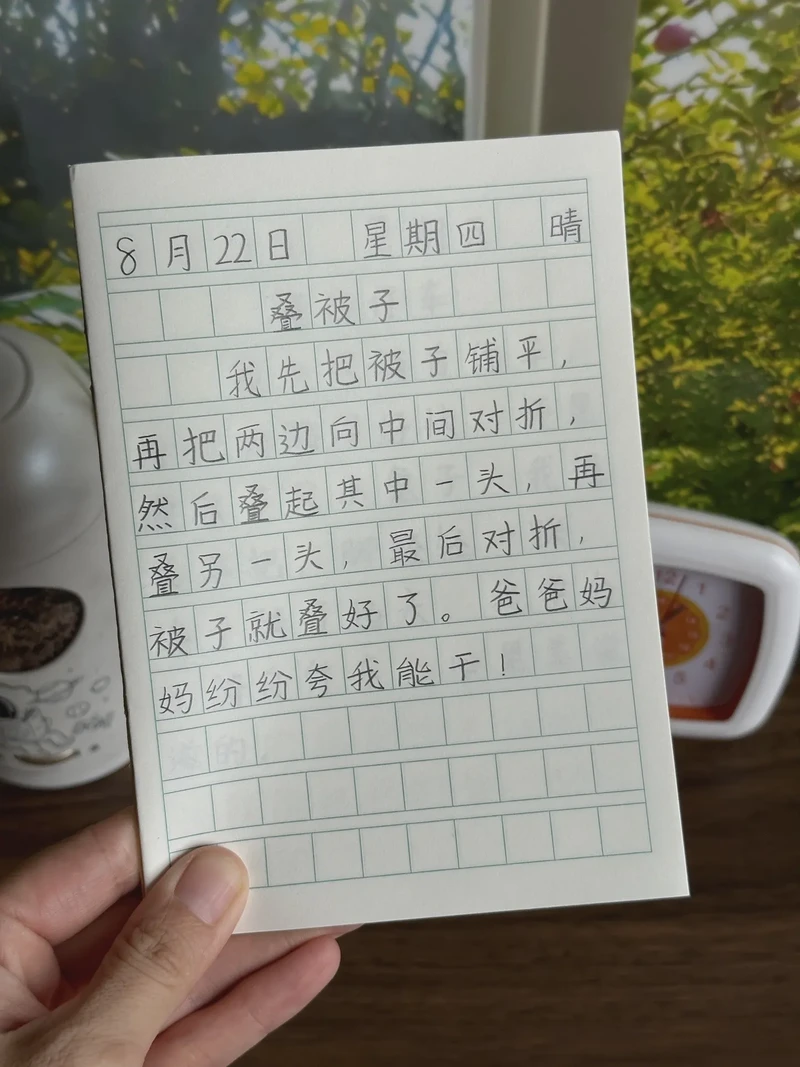 8月22日 星期四 晴
叠被子
我先把被子铺平，
再把两边向中间对折，
然后叠起其中一头，再
叠另一头，最后对折，
被子就叠好了。爸爸妈
妈纷纷夸我能干！